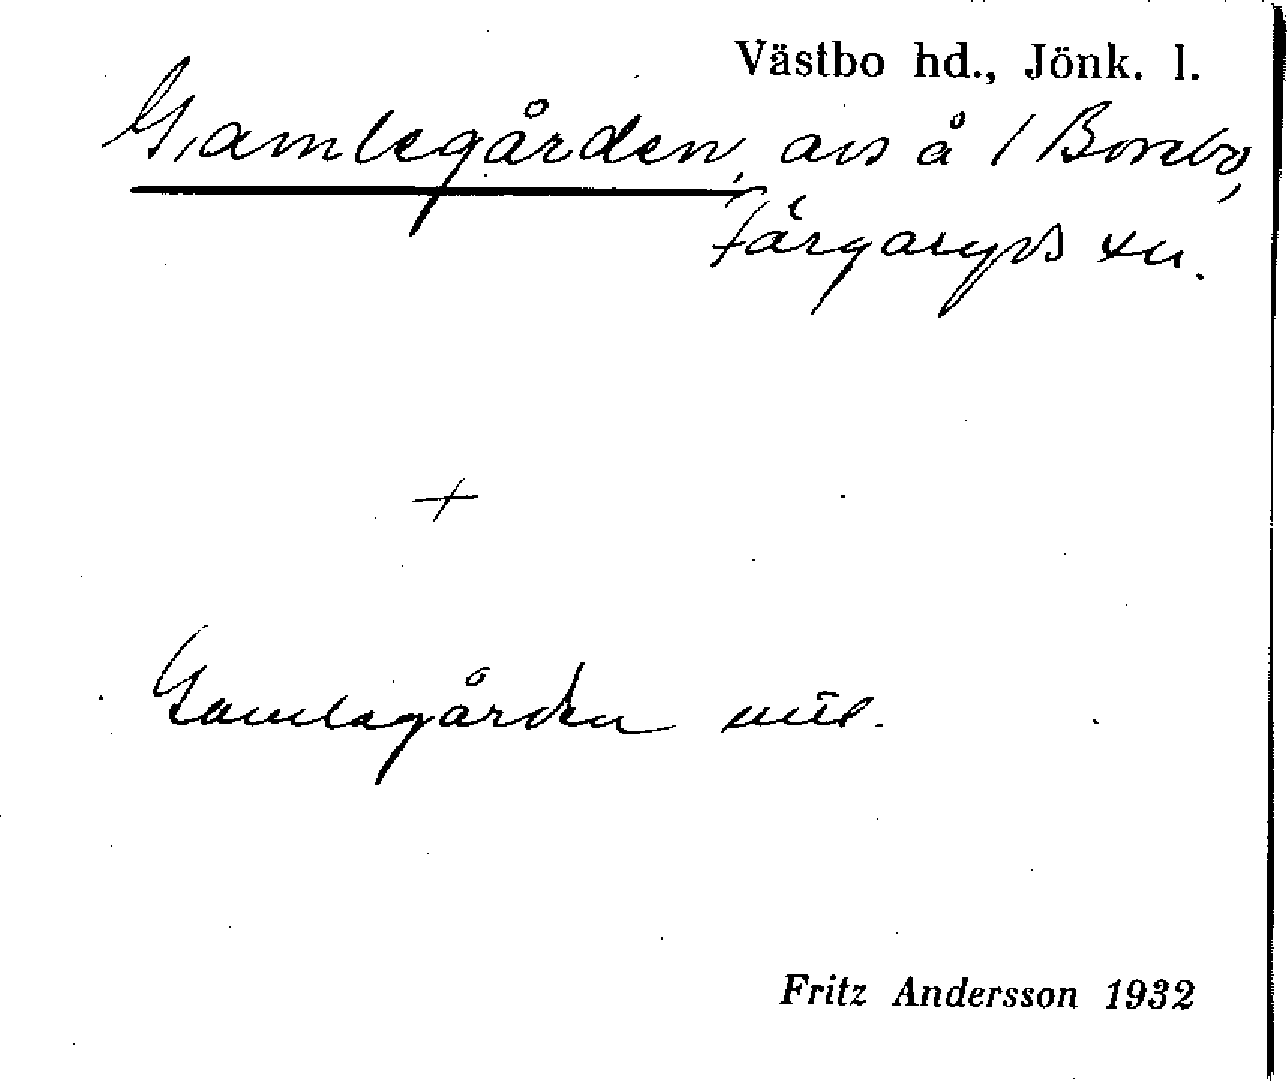 Västbo hd., Jönk. l.
Gamlegården, avs å 1 Borebo,
Färgaryds sn.
+
Gamlagården
Fritz Andersson 1932